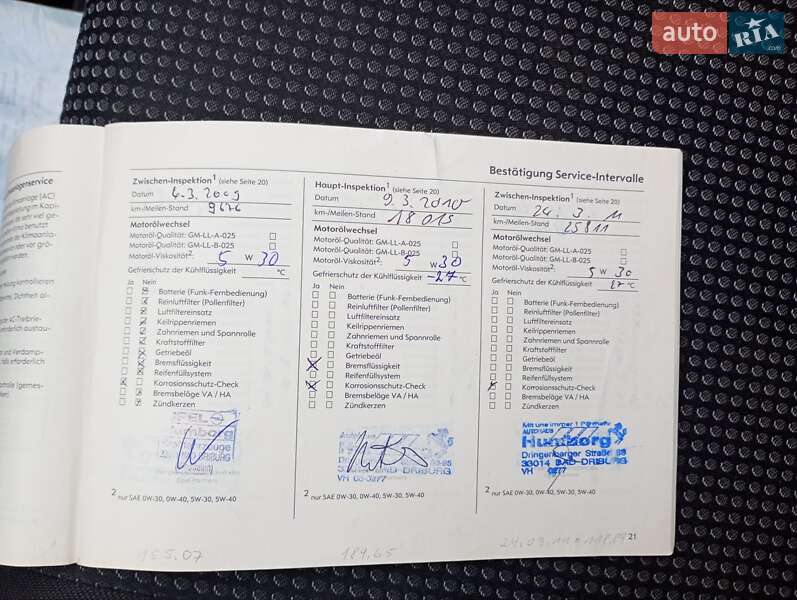 auto RIA.com
Bestätigung Service-Intervalle
Zwischen-Inspektion¹ (siehe Seite 20)
Datum 6.3.2009
km-/Meilen-Stand
Motorölwechsel
Motoröl-Qualität: GM-LL-A-025
Motoröl-Qualität: GM-LL-B-025
Motoröl-Viskosität²: 5 W 30
Gefrierschutz der Kühlflüssigkeit °C
Ja Nein
Batterie (Funk-Fernbedienung)
Reinluftfilter (Pollenfilter)
Luftfiltereinsatz
Keilrippenriemen
Zahnriemen und Spannrolle
Kraftstofffilter
Getriebeöl
Bremsflüssigkeit
Reifenfüllsystem
Korrosionsschutz-Check
Bremsbeläge VA / HA
Zündkerzen
² nur SAE 0W-30, 0W-40, 5W-30, 5W-40
155.07
Haupt-Inspektion¹ (siehe Seite 20)
Datum 9.3.2010
km-/Meilen-Stand 18015
Motorölwechsel
Motoröl-Qualität: GM-LL-A-025
Motoröl-Qualität: GM-LL-B-025
Motoröl-Viskosität²: 5 W 30
Gefrierschutz der Kühlflüssigkeit -27 °C
Ja Nein
Batterie (Funk-Fernbedienung)
Reinluftfilter (Pollenfilter)
Luftfiltereinsatz
Keilrippenriemen
Zahnriemen und Spannrolle
Kraftstofffilter
Getriebeöl
Bremsflüssigkeit
Reifenfüllsystem
Korrosionsschutz-Check
Bremsbeläge VA / HA
Zündkerzen
BAD-DRIBURG
VH 08-0277
² nur SAE 0W-30, 0W-40, 5W-30, 5W-40
184,65
Zwischen-Inspektion¹ (siehe Seite 20)
Datum 24.3.11
km-/Meilen-Stand 25811
Motorölwechsel
Motoröl-Qualität: GM-LL-A-025
Motoröl-Qualität: GM-LL-B-025
Motoröl-Viskosität²: 5 W 30
Gefrierschutz der Kühlflüssigkeit °C
Ja Nein
Batterie (Funk-Fernbedienung)
Reinluftfilter (Pollenfilter)
Luftfiltereinsatz
Keilrippenriemen
Zahnriemen und Spannrolle
Kraftstofffilter
Getriebeöl
Bremsflüssigkeit
Reifenfüllsystem
Korrosionsschutz-Check
Bremsbeläge VA / HA
Zündkerzen
Mit uns immer 1 PS mehr
AUTOHAUS
Humborg
Dringenberger Straße
33014 BAD-DRIBURG
VH 0277
² nur SAE 0W-30, 0W-40, 5W-30, 5W-40
21